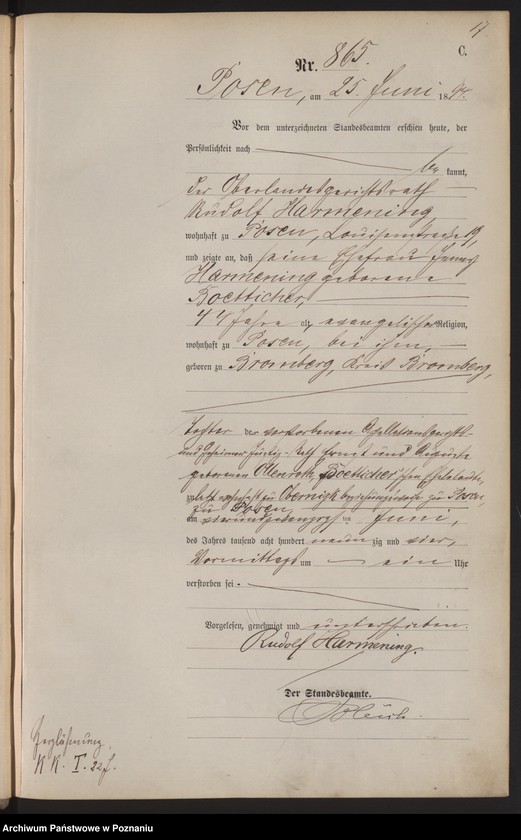 17
C.
Nr. 865.
Posen, am 25. Juni 1894.
Vor dem unterzeichneten Standesbeamten erschien heute, der
Persönlichkeit nach
be kannt,
der Oberlandesgerichtsrath
Rudolf Harmening,
wohnhaft zu Posen, Louisenstraße 19,
und zeigte an, daß seine Ehefrau
Harmening geborene
Boetticher,
44 Jahre alt, evangelischer Religion,
wohnhaft zu Posen, bei ihm,
geboren zu Bromberg, Kreis Bromberg,
Tochter der verstorbenen
und Geheimen Justiz-Rath Ernst und
geborenen Ollenroth, Boetticher'schen Eheleute,
zuletzt wohnhaft zu Obernigk beziehungsweise zu Posen,
zu Posen,
am vierundzwanzigsten Juni,
des Jahres tausend acht hundert neun zig und vier,
Vormittags um ein Uhr
verstorben sei.
Vorgelesen, genehmigt und unterschrieben.
Rudolf Harmening.
Der Standesbeamte.
K K. I. 22 f.
Archiwum Państwowe w Poznaniu